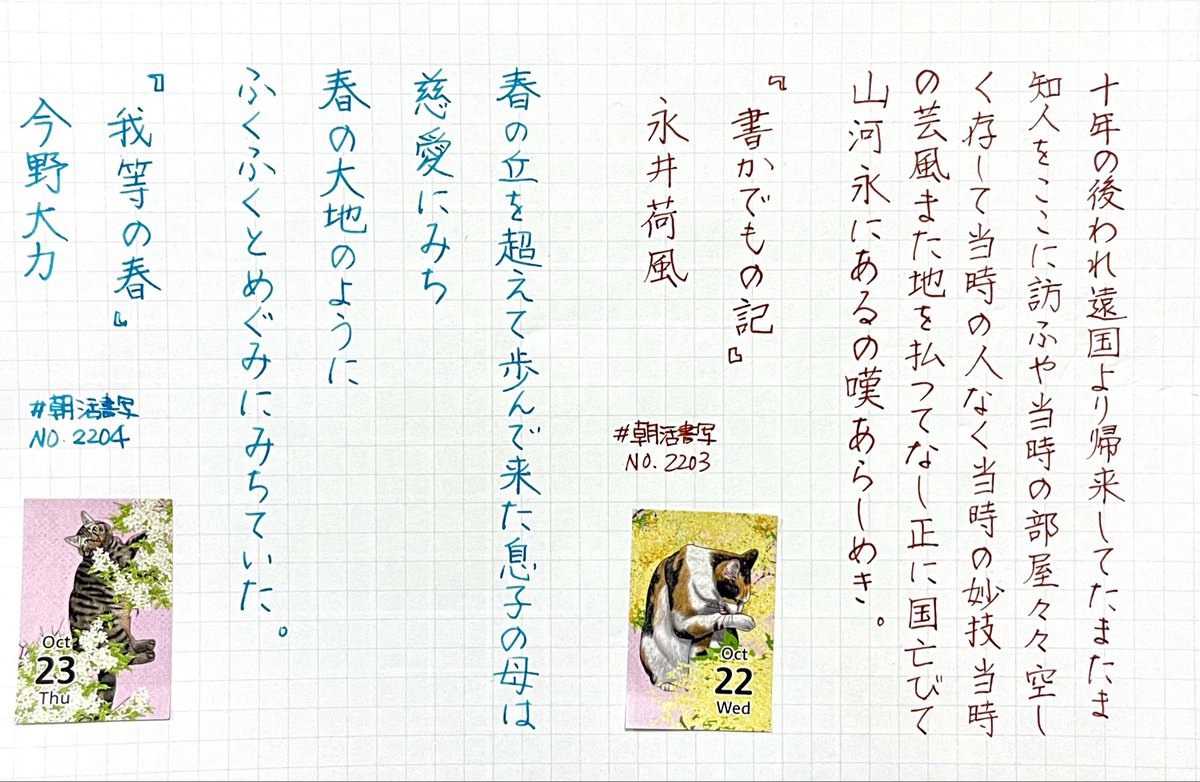 十年の後われ遠国より帰来してたまたま
知人をここに訪ふや当時の部屋々々空し
く存して当時の人なく当時の妙技当時
の芸風また地を払つてなし正に国亡びて
山河永にあるの嘆あらしめき。
『書かでもの記』
永井荷風
#朝活書写
NO.2203
Oct
22
Wed
春の丘を超えて歩んで来た息子の母は
慈愛にみち
春の大地のように
ふくふくとめぐみにみちていた。
『我等の春』
今野大力
#朝活書写
NO.2204
Oct
23
Thu